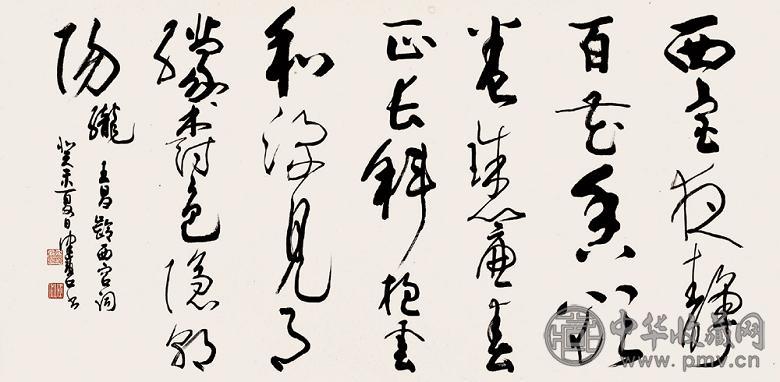 西宫夜静
百花香欲
卷珠簾春
長斜抱雲
和深見月
朦樹色隐昭
陽
朧 王昌齡西宫词
癸未夏日
中华收藏网
www.pmv.cn